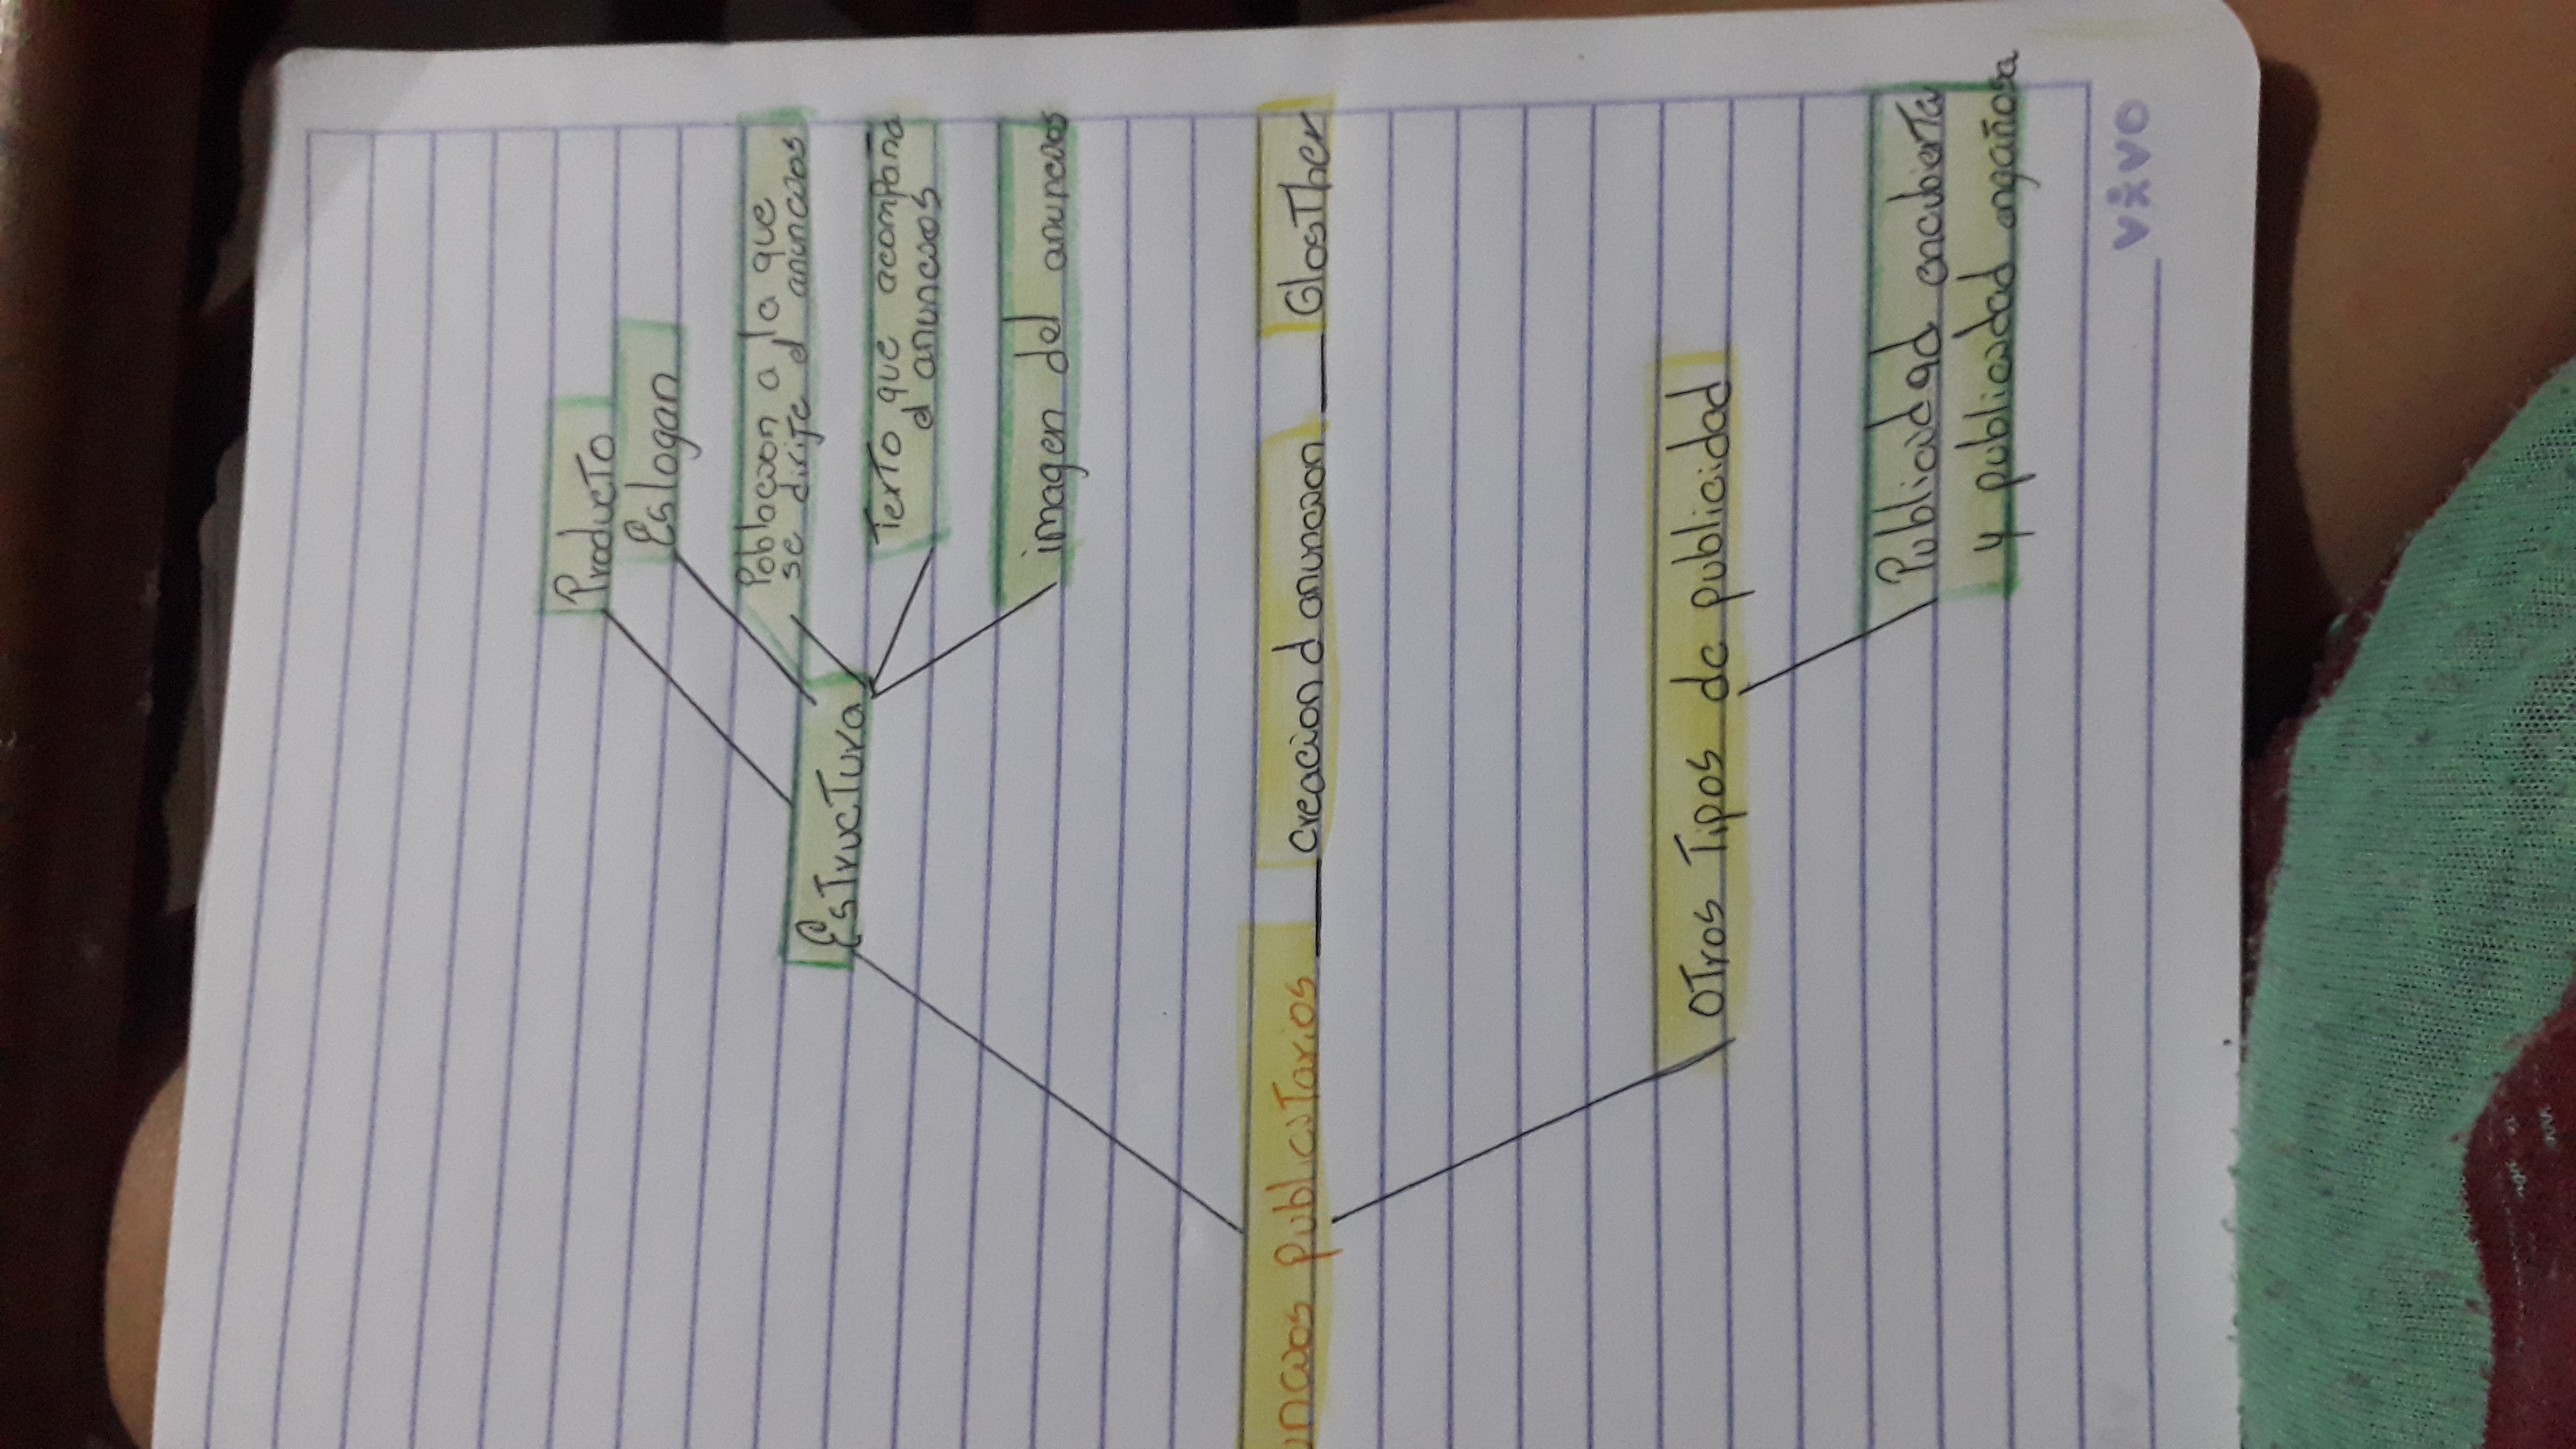 Producto
Eslogan
Poblacion a la que
se dirije el anuncios
Estructura
Texto que acompaña
el anuncios
imagen del anuncios
uncios publicitarios
creacion d anuncion
Glosther
Otros Tipos de publicidad
Publicidad encubierta
y publicidad engañosa
vivo